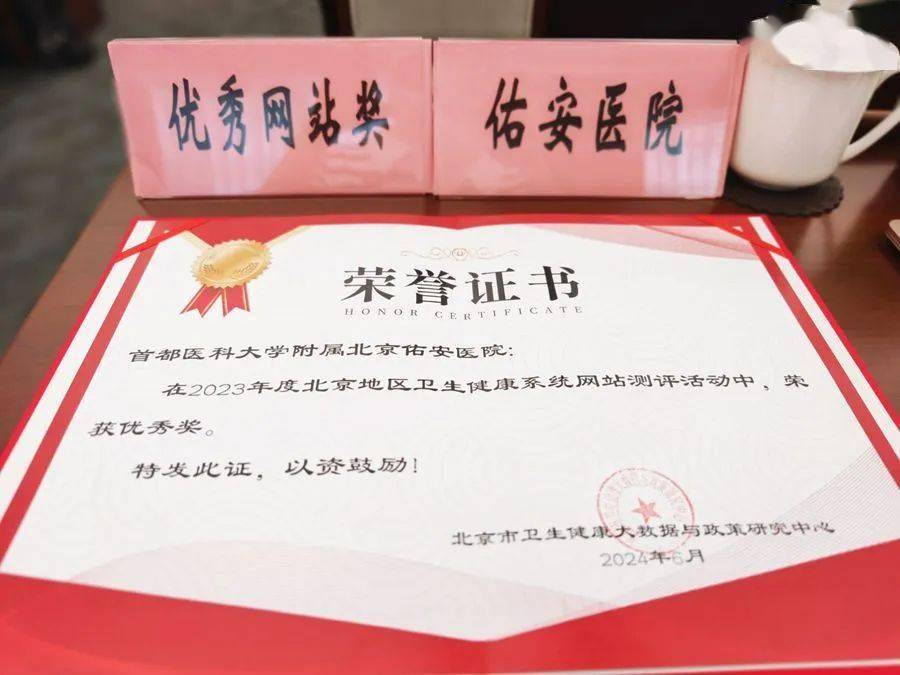 优秀网站奖
佑安医院
荣誉证书
HONOR CERTIFICATE
首都医科大学附属北京佑安医院:
在2023年度北京地区卫生健康系统网站测评活动中，荣
获优秀奖。
特发此证，以资鼓励！
北京市卫生健康大数据与政策研究中心
2024年6月